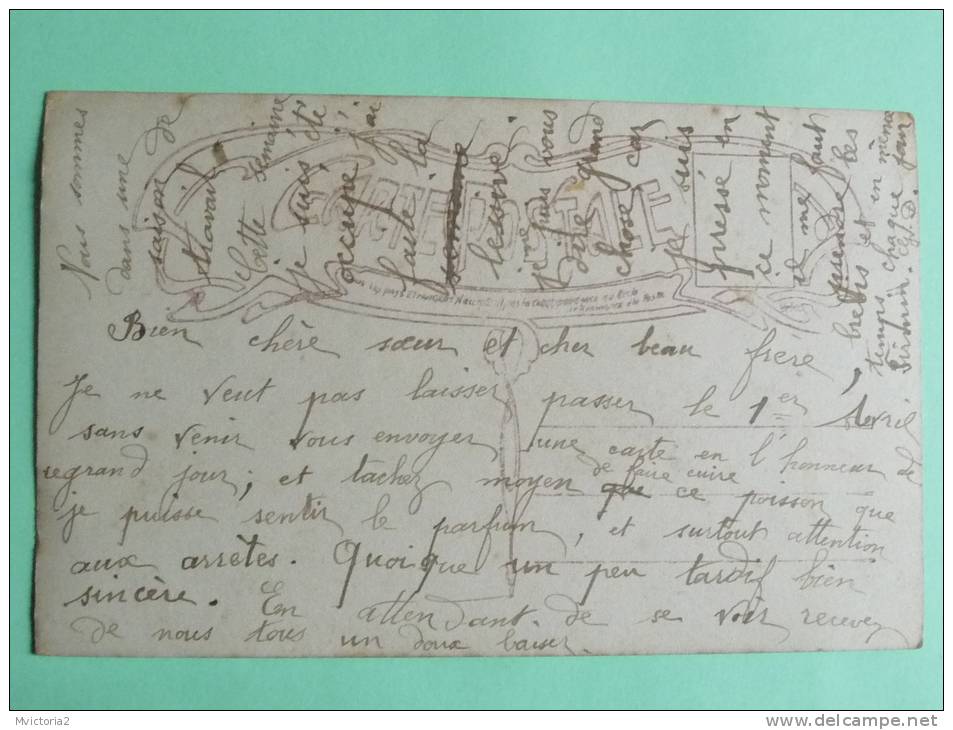 Bien chère sœur et cher beau frère,
Je ne veut pas laisser passer le 1er Avril
sans venir vous envoyer une carte en l'honneur de
ce grand jour; et tachez moyen de faire cuire ce poisson que
je puisse sentir le parfum, et surtout attention
aux arrêtes. Quoique un peu tardif bien
sincère. En attendant de se voir recevez
de nous tous un doux baiser.
Nous sommes
dans une
saison de
travail
Cette semaine
je suis été
occupé j'ai
faite la
lessive
je puis vous
dire grand
chose car
je suis
pressé en
ce moment
il me faut
les
brebis et en même
temps chaque
Firmin.
CARTE POSTALE
Mvictoria2
www.delcampe.net